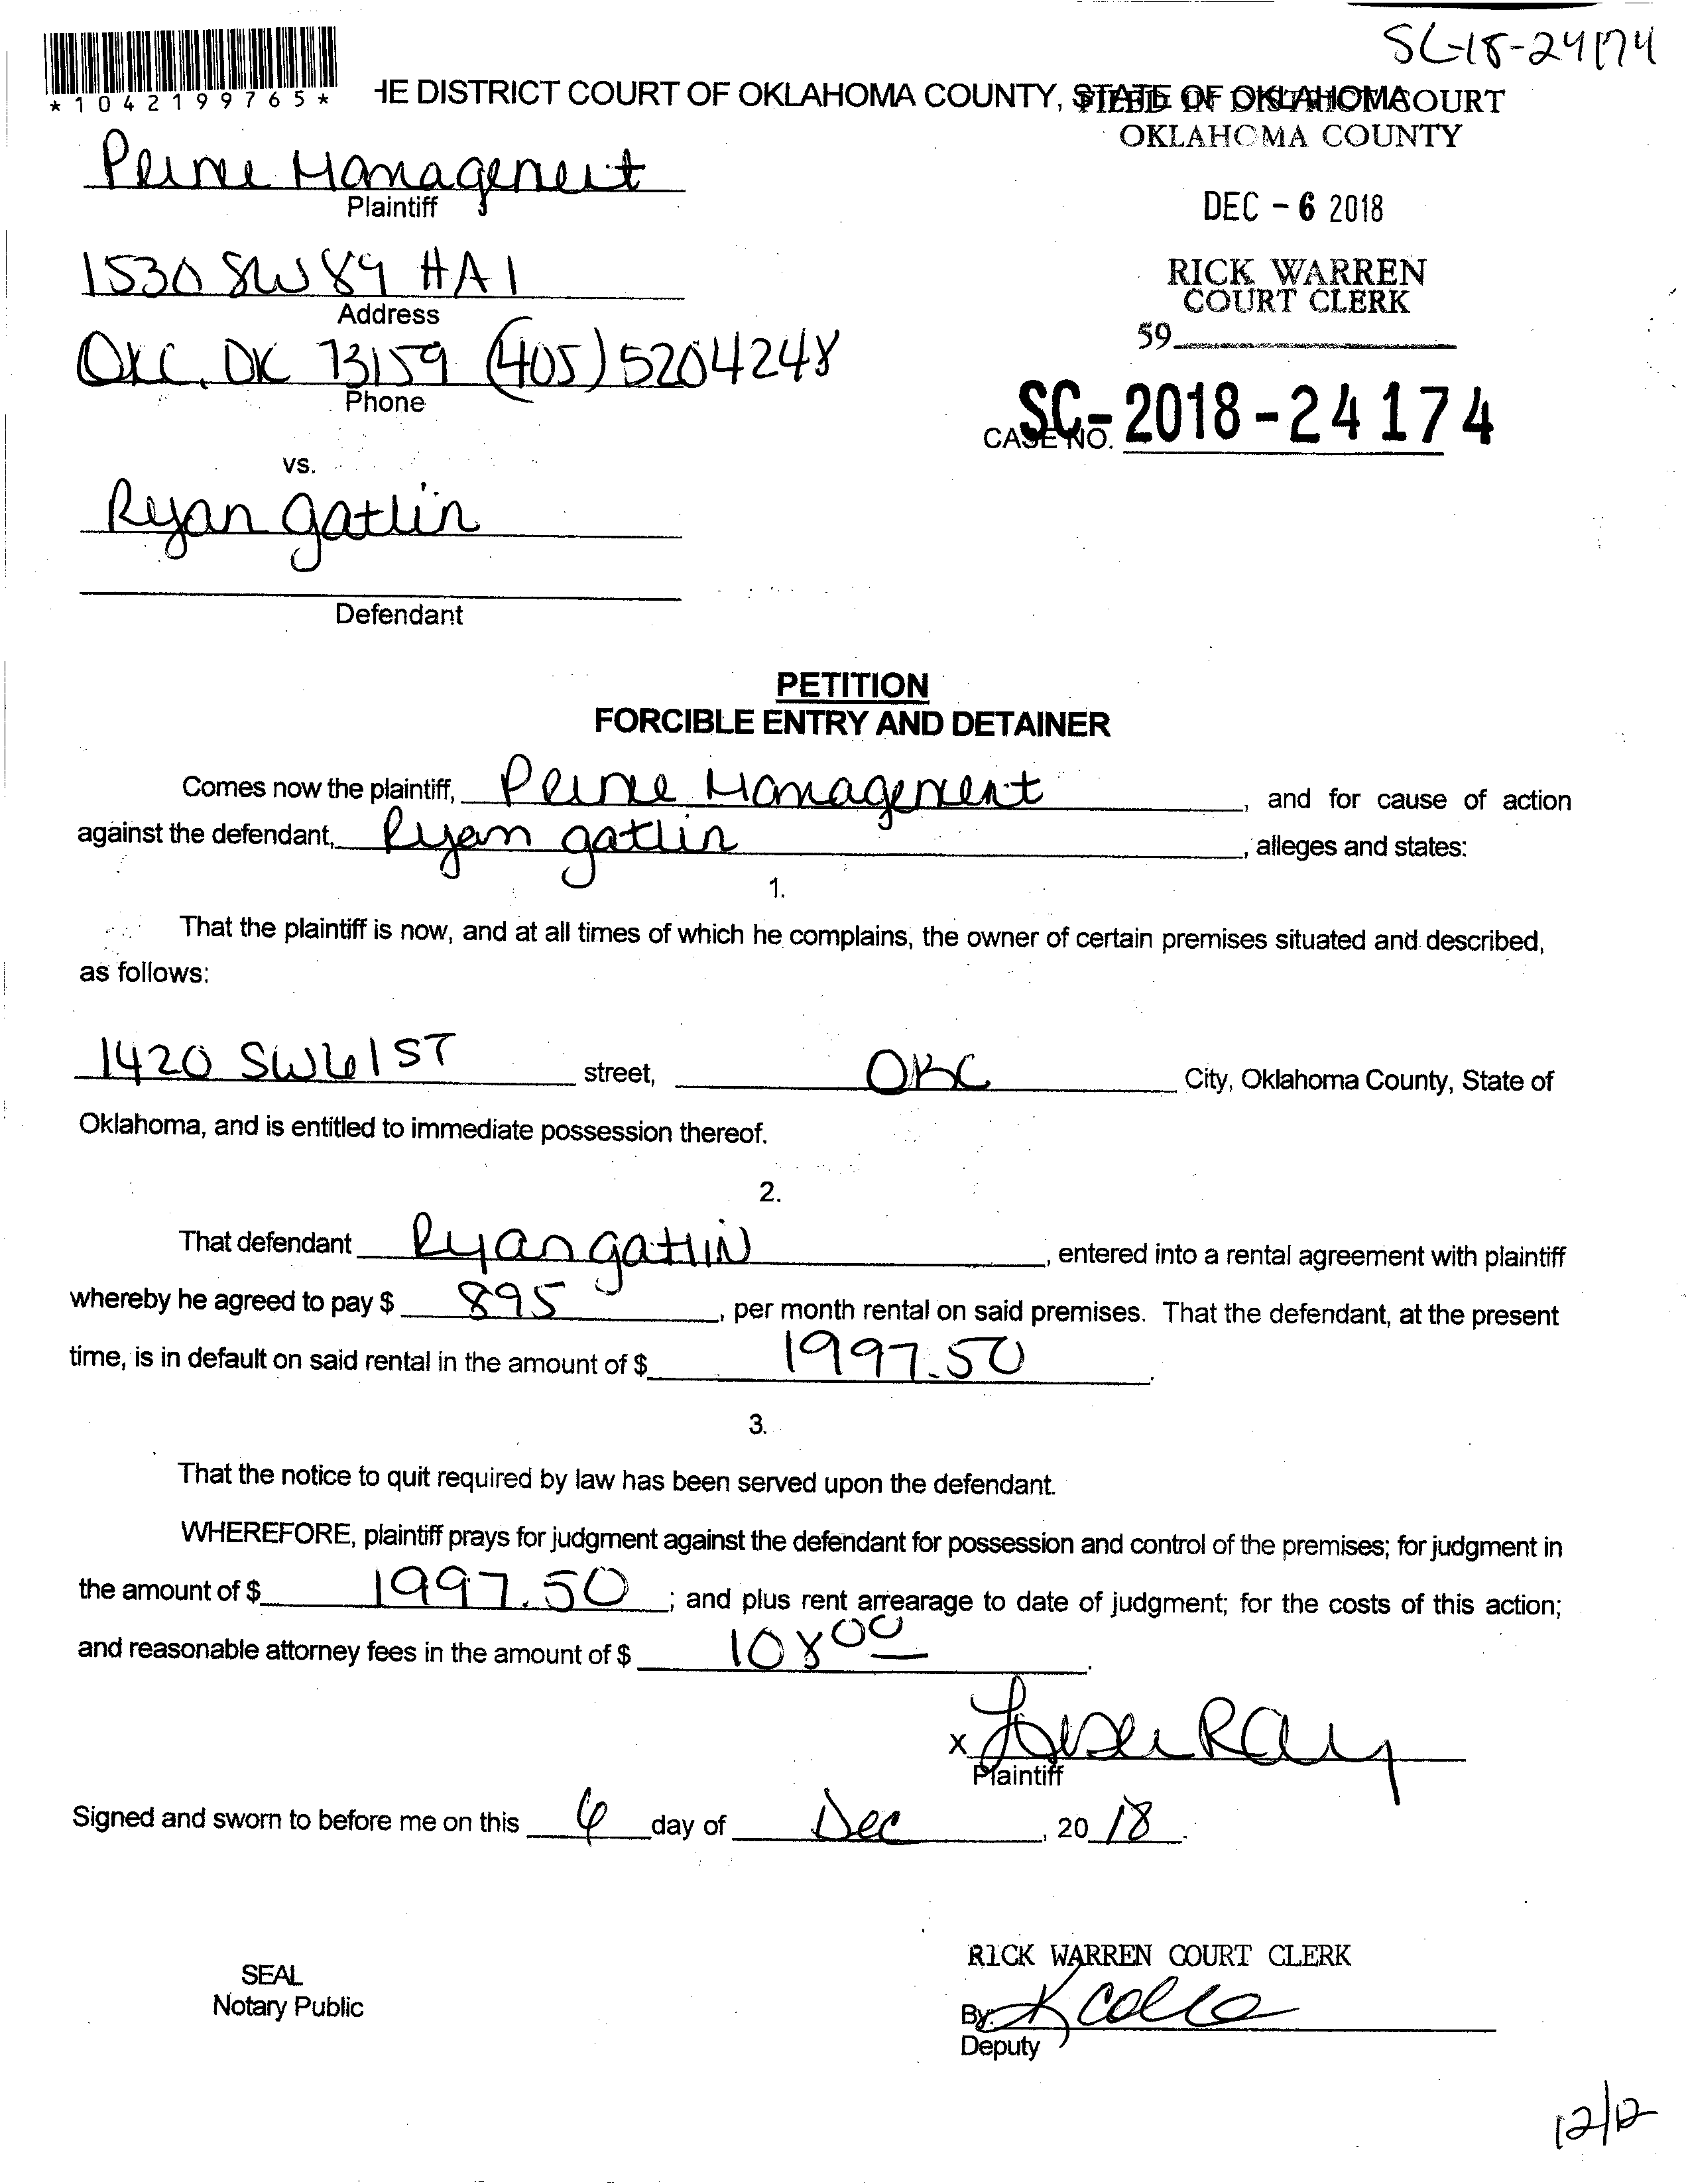 SC-18-24174
*1042199765*
HE DISTRICT COURT OF OKLAHOMA COUNTY, STATE OF OKLAHOMA
FILED IN DISTRICT COURT
OKLAHOMA COUNTY
DEC - 6 2018
RICK WARREN
COURT CLERK
59
Management
Plaintiff
1530 SW 89 #A1
Address
OKC, OK 73159 (405) 5204248
Phone
CASE NO. SC-2018-24174
vs.
Ryan gatlin
Defendant
PETITION
FORCIBLE ENTRY AND DETAINER
Comes now the plaintiff, Management, and for cause of action
against the defendant, Ryan gatlin, alleges and states:
1.
That the plaintiff is now, and at all times of which he complains, the owner of certain premises situated and described,
as follows:
1420 SW 61 ST street, OKC City, Oklahoma County, State of
Oklahoma, and is entitled to immediate possession thereof.
2.
That defendant Ryan gatlin, entered into a rental agreement with plaintiff
whereby he agreed to pay $ 895, per month rental on said premises. That the defendant, at the present
time, is in default on said rental in the amount of $ 1997.50.
3.
That the notice to quit required by law has been served upon the defendant.
WHEREFORE, plaintiff prays for judgment against the defendant for possession and control of the premises; for judgment in
the amount of $ 1997.50; and plus rent arrearage to date of judgment; for the costs of this action;
and reasonable attorney fees in the amount of $ 108 00.
x Ray
Plaintiff
Signed and sworn to before me on this 6 day of Dec, 20 18.
RICK WARREN COURT CLERK
SEAL
Notary Public
By:
Deputy
12/12